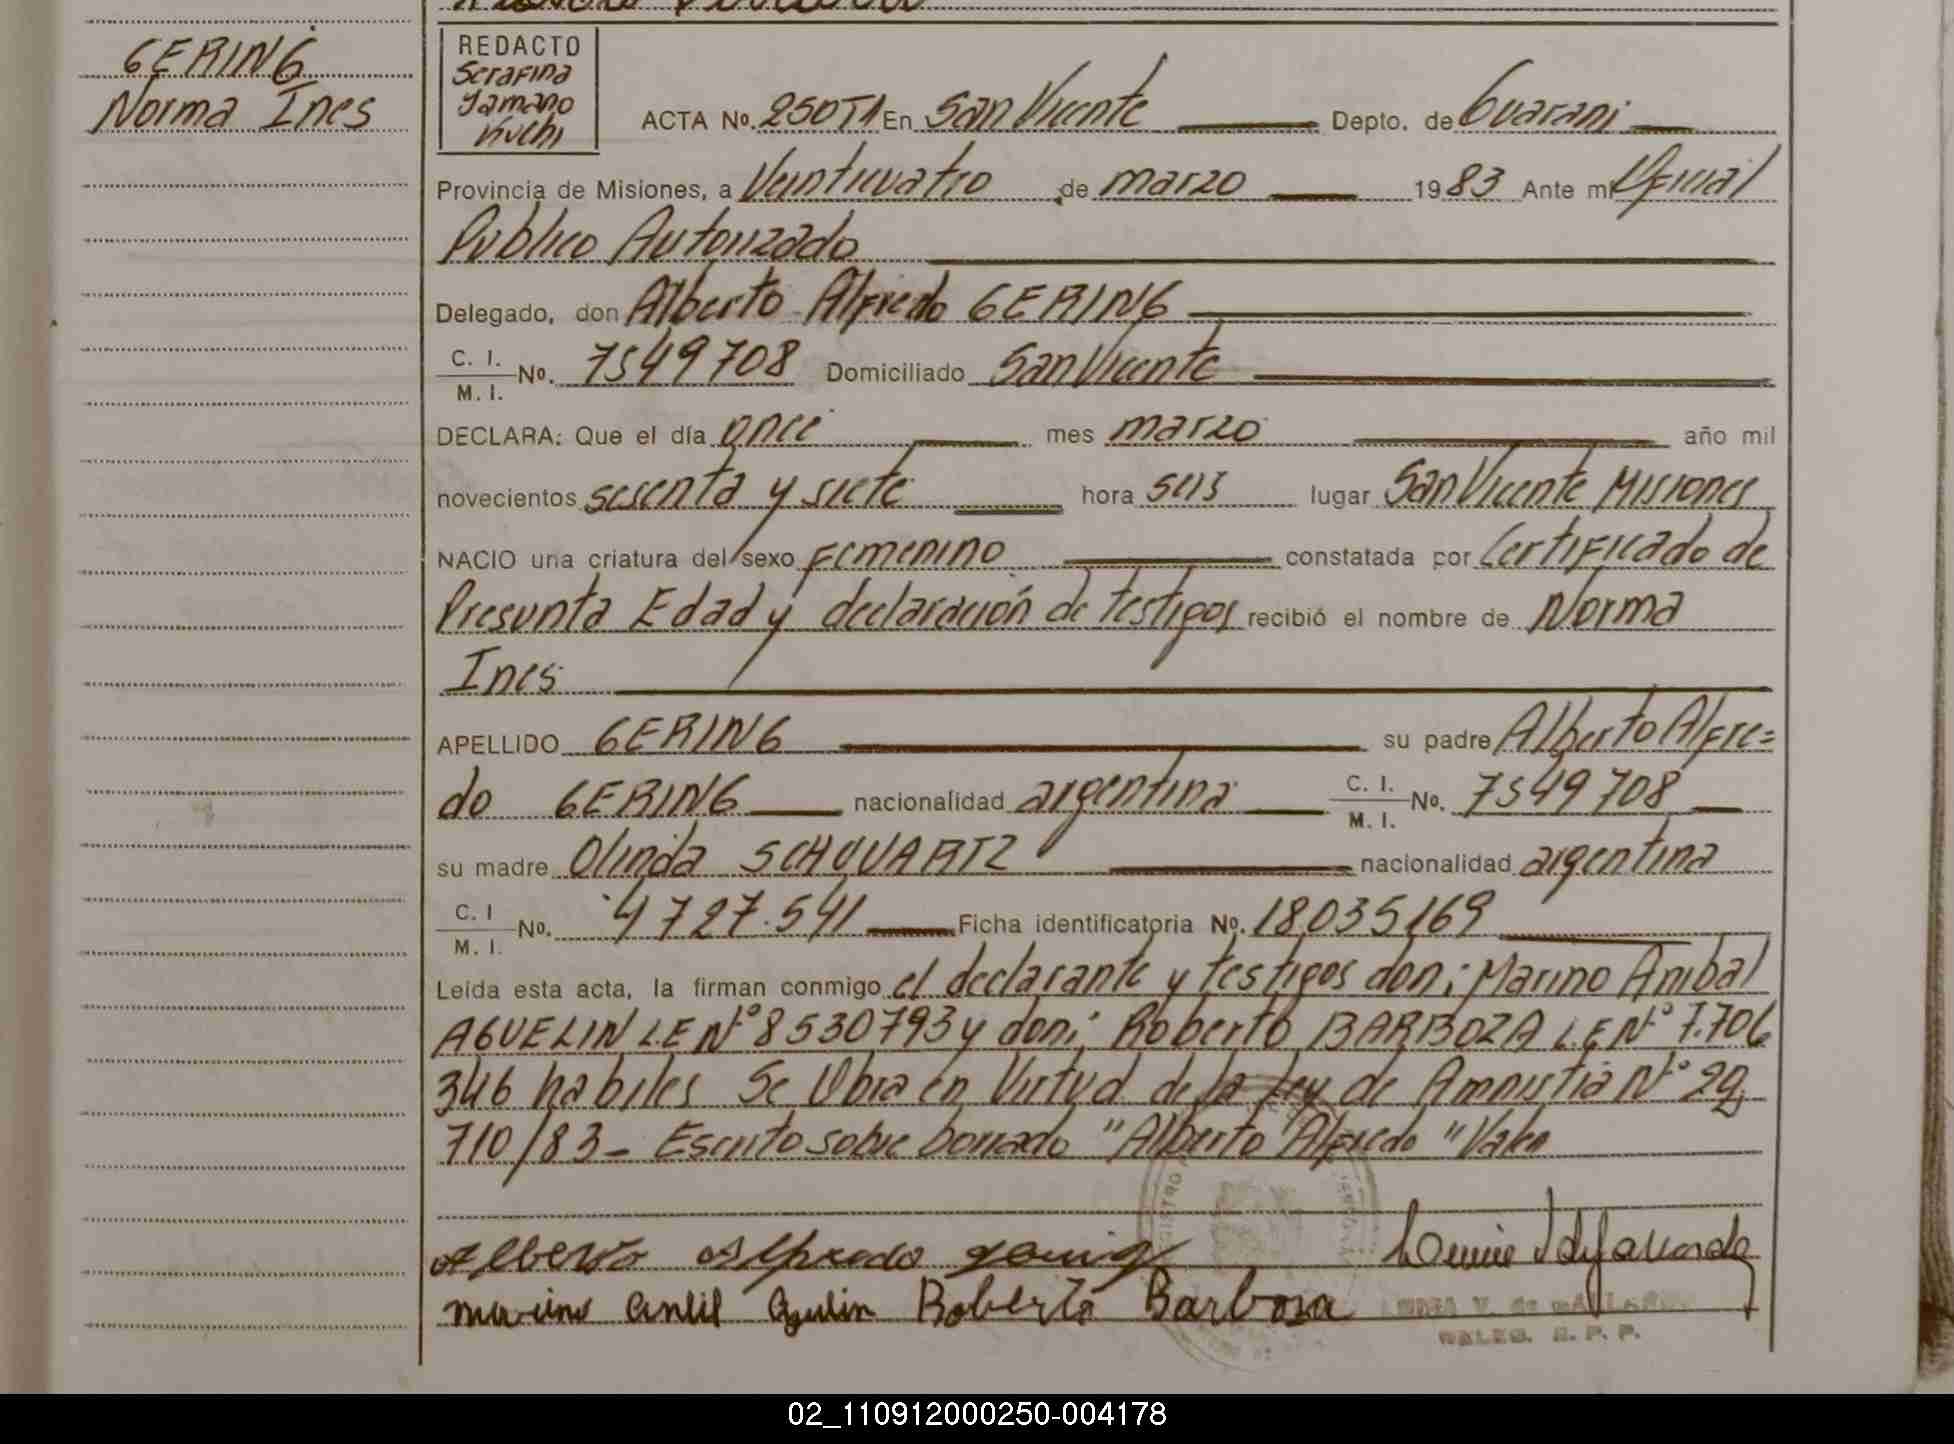 GERING
Norma Ines
REDACTO
Serafina
Yamano
Kuchi
ACTA No. 250T1 En San Vicente Depto. de Guarani
Provincia de Misiones, a Veinticuatro de marzo 1983 Ante mi Oficial
Publico Autorizado
Delegado, don Alberto Alfredo GERING
C. I.
M. I. No. 7549708 Domiciliado San Vicente
DECLARA: Que el día once mes marzo año mil
novecientos sesenta y siete hora seis lugar San Vicente Misiones
NACIO una criatura del sexo Femenino constatada por Certificado de
Presunta Edad y declaración de testigos recibió el nombre de Norma
Ines
APELLIDO GERING su padre Alberto Alfre=
do GERING nacionalidad argentina C. I.
M. I. No. 7549708
su madre Olinda SCHUVARTZ nacionalidad argentina
C. I
M. I. No. 4727.541 Ficha identificatoria No. 18035169
Leída esta acta, la firman conmigo el declarante y testigos don: Marino Anibal
AGUELIN L.E N° 8530793 y don: Roberto BARBOZA L.E N° 7.706
346 habiles Se Obra en Virtud de la Ley de Amnistia N° 22.
710/83- Escrito sobre borrado "Alberto Alfredo" Vale
Alberto Alfredo Gering
Roberto Barboza
R. P. P.
02_110912000250-004178